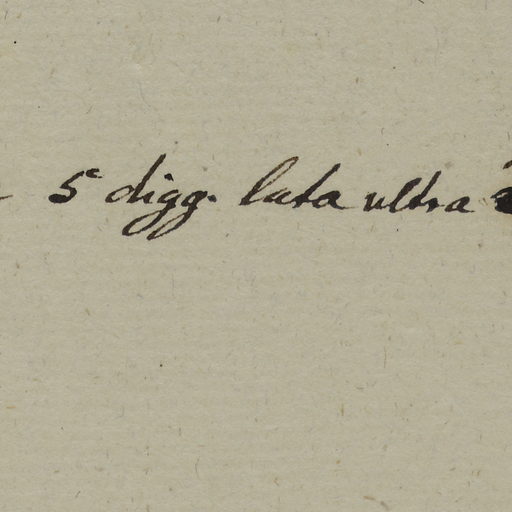 5 digg. lata ultra